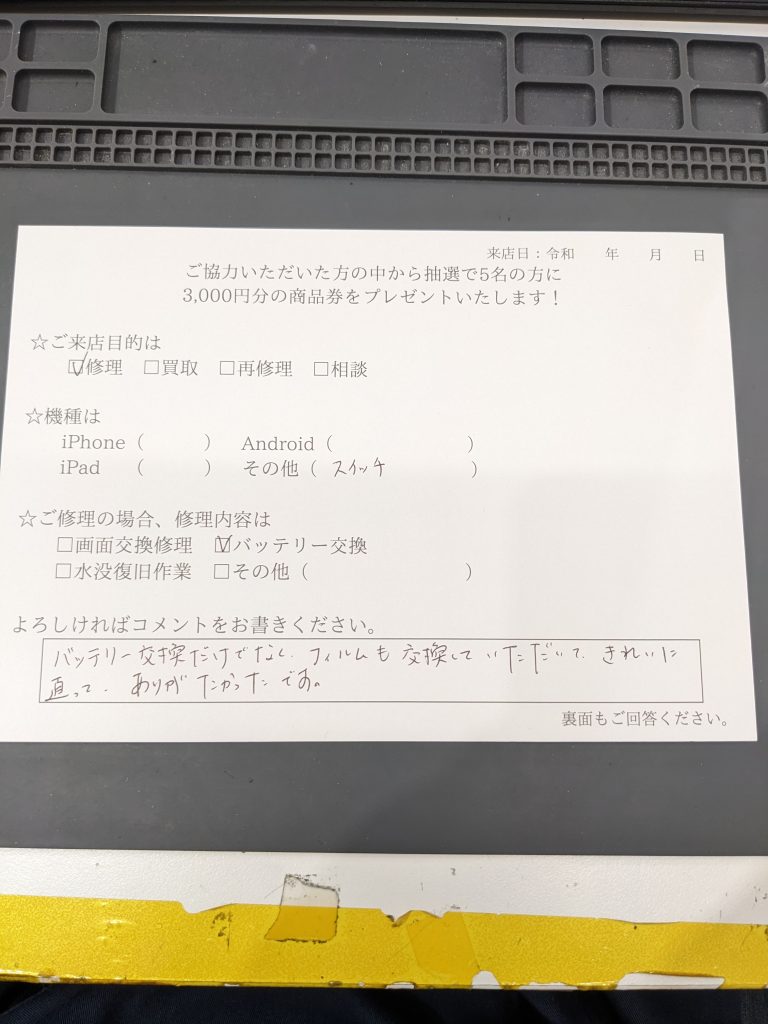 来店日：令和　年　月　日
ご協力いただいた方の中から抽選で5名の方に
3,000円分の商品券をプレゼントいたします！
☆ご来店目的は
☑修理 □買取 □再修理 □相談
☆機種は
iPhone（　　　） Android（　　　　　　）
iPad　（　　　） その他（ スイッチ　　　　）
☆ご修理の場合、修理内容は
□画面交換修理 ☑バッテリー交換
□水没復旧作業 □その他（　　　　　　　）
よろしければコメントをお書きください。
バッテリー交換だけでなく、フィルムも交換していただいて、きれいに
直って、ありがたかったです。
裏面もご回答ください。